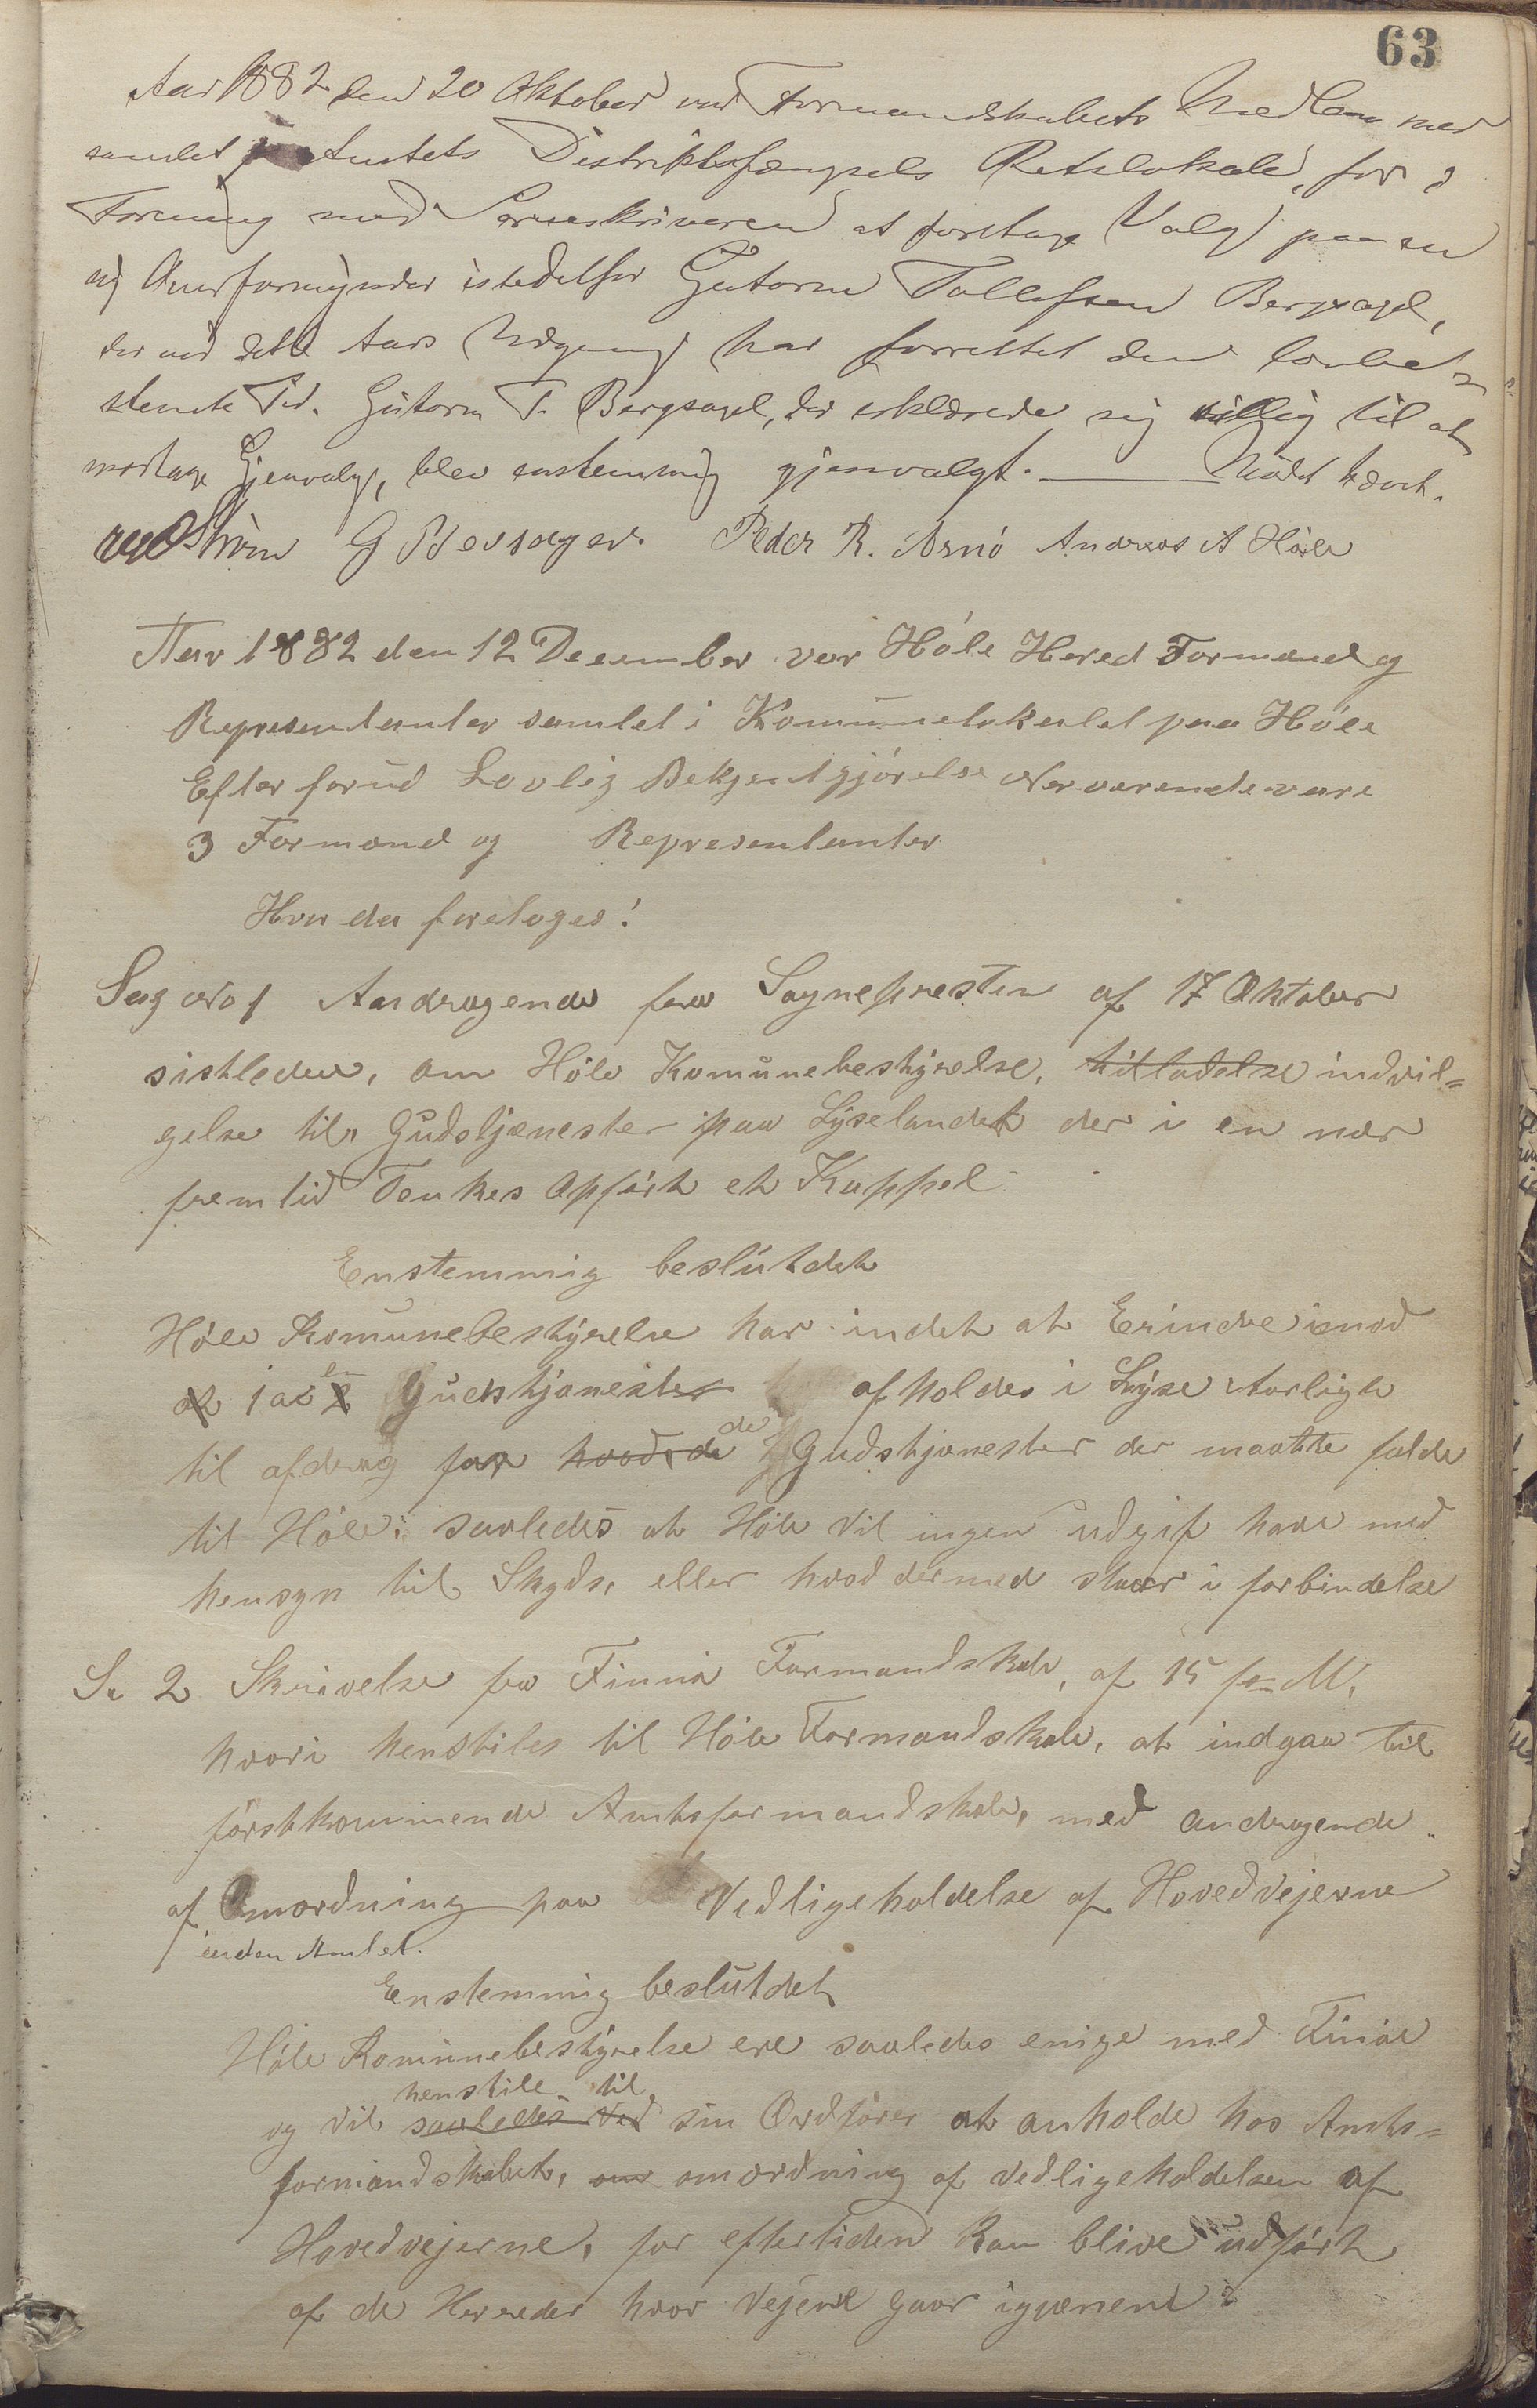 63
Aar 1882 den 20 Oktober var Formandskabets Medlem med
samlet Amtets Distriktsfængsels Retslokale, for i
Forening med Sorenskriveren at foretage Valg paa en
ny Overformynder istedetfor Gutorm Tollefsen Bergsagel,
der ved dette Aars Udgang har forrettet den lovbe-
stemte Tid. Gutorm T. Bergsagel, der erklærede sig villig til at
modtage Gjenvalg, blev enstemmig gjenvalgt. Mødet hævet.
G Bersagel. Peder R. Asniö Andreas A Høle
Aar 1882 den 12 December var Høle Hered Formænd og
Representanter samlet i Komunelokalet paa Høle
Efter forud Lovlig Bekjentgjörelse Nerverende vare
3 Formænd og Representanter
Hvor da foretoges!
Sag No 1 Andragende fra Sognepresten af 17 Oktober
sistleden, om Høle Komunebestyrelse, tilladelse indvil=
gelse til Gudstjenester paa Lyselandet der i en nær
fremtid Tenkes Opfört et Kappel
Enstemmig beslutdet
Höle Komunebestyrelse har indet at Erindre imod
at 1 a 2 Gudstjenester afholdes i Lyse aarligt
til afdrag for hvad de de Gudstjenester der maatte falde
til Höle; saaledes at Höle vil ingen udgif have med
hensyn til Skyds, eller hvad dermed staar i forbindelse
S. 2 Skrivelse fra Finnö Formandskab, af 15 f. M.
hvori henstiles til Höle Formandskab, at indgaa til
förstkommende Amtsformandskab, med andragende
af Omordning paa Vedligeholdelse af Hovedvejerne
inden Amtet.
Enstemmig beslutdet
Höle Komunebestyrelse ere saaledes enige med Finnö
henstile til
og vil saaledes ved sin Ordförer at anholde hos Amts=
formandskabet, om omordning af vedligeholdelsen af
Hovedvejerne, for eftertiden kan blive udfört
af de Hereder hvor Vejene gaar igjenem